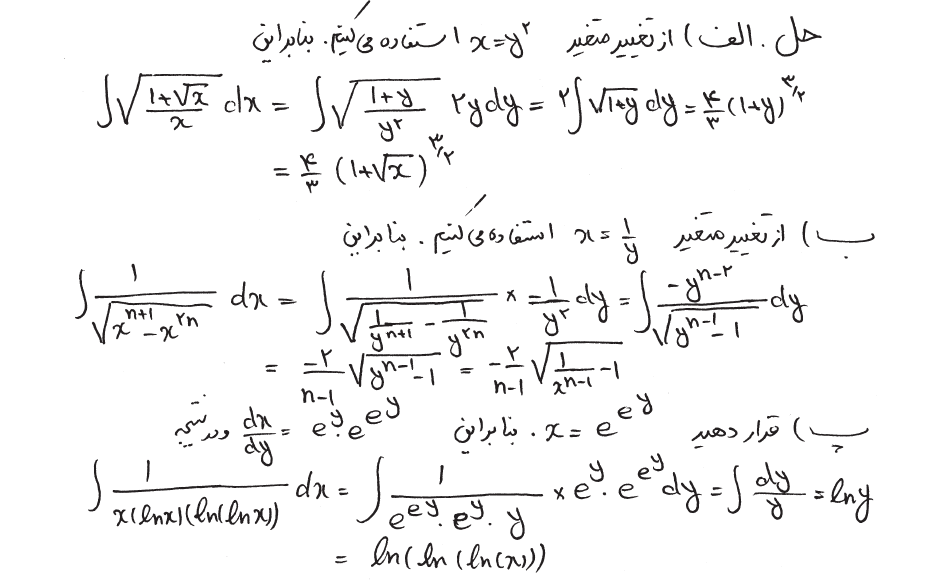 حل. الف) از تغییر متغیر x=y^۲ استفاده می‌کنیم. بنابراین
∫√((1+√x)/x) dx = ∫√((1+y)/y^۲) ۲y dy = ۲∫√(1+y) dy = ۴/۳ (1+y)^{۳/۲}
= ۴/۳ (1+√x)^{۳/۲}
ب) از تغییر متغیر x = 1/y استفاده می‌کنیم. بنابراین
∫ 1/√(x^{n+1} - x^{۲n}) dx = ∫ 1/√(1/y^{n+1} - 1/y^{۲n}) × -1/y^۲ dy = ∫ -y^{n-۲}/√(y^{n-1} - 1) dy
= -۲/(n-1) √(y^{n-1} - 1) = -۲/(n-1) √(1/x^{n-1} - 1)
پ) قرار دهید x = e^{e^y}. بنابراین dx/dy = e^y · e^{e^y} و در نتیجه
∫ 1/(x(lnx)(ln(lnx))) dx = ∫ 1/(e^{e^y} · e^y · y) × e^y · e^{e^y} dy = ∫ dy/y = ln y
= ln(ln(ln(x)))